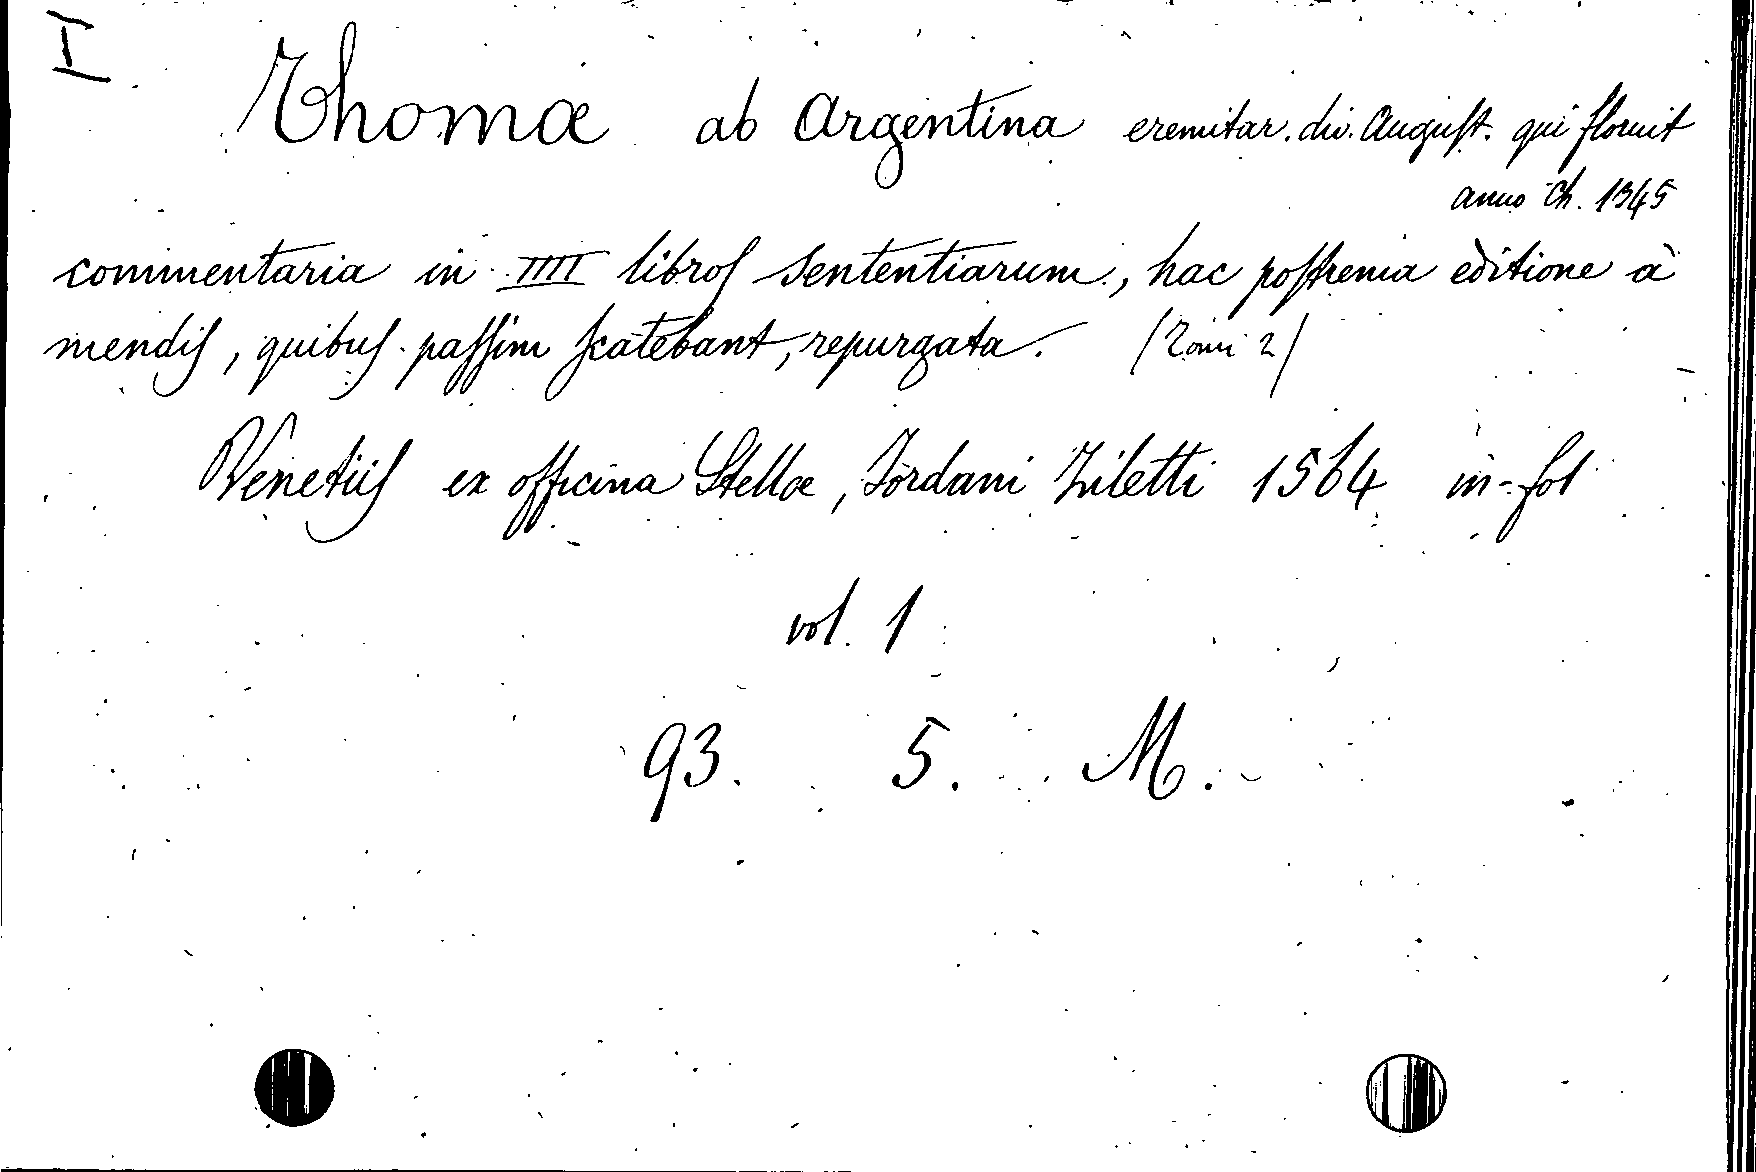 I
Thomæ ab Argentina eremitar. div. August. qui floruit
anno Ch. 1345
commentaria in IIII libros Sententiarum, hac postrema editione à
mendis, quibus passim scatebant, repurgata. (Tomi 2)
Venetiis ex officina Stellæ, Jordani Ziletti 1564 in-fol
vol. 1
93. 5. M.